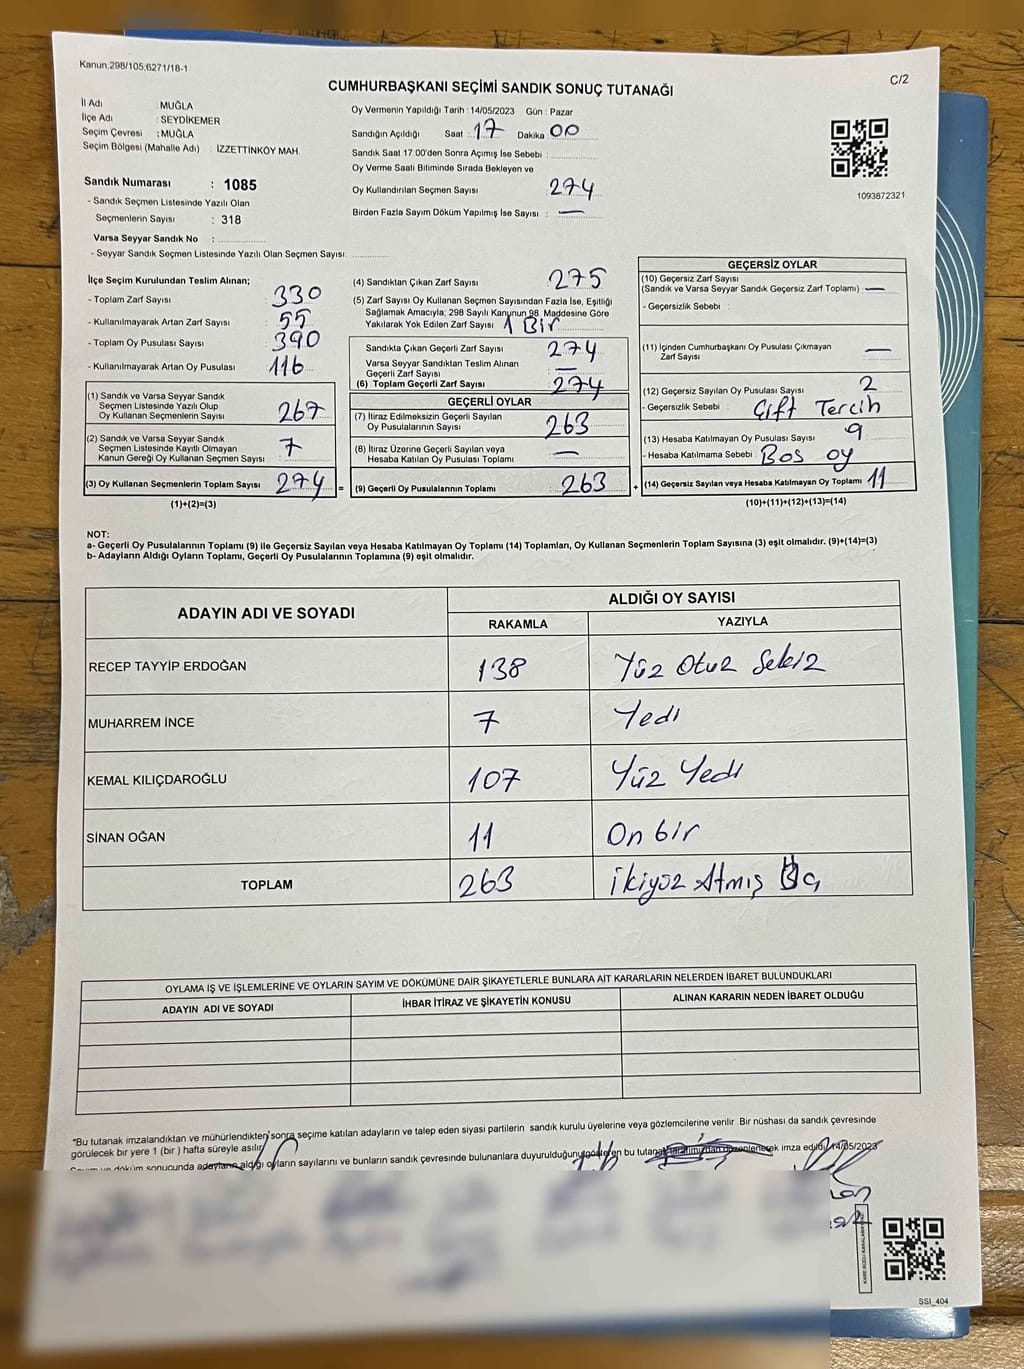 Kanun.298/105,6271/18-1
C/2
CUMHURBAŞKANI SEÇİMİ SANDIK SONUÇ TUTANAĞI
İl Adı : MUĞLA
İlçe Adı : SEYDİKEMER
Seçim Çevresi : MUĞLA
Seçim Bölgesi (Mahalle Adı) : İZZETTİNKÖY MAH.
Sandık Numarası : 1085
- Sandık Seçmen Listesinde Yazılı Olan
Seçmenlerin Sayısı : 318
Varsa Seyyar Sandık No :
- Seyyar Sandık Seçmen Listesinde Yazılı Olan Seçmen Sayısı:
Oy Vermenin Yapıldığı Tarih : 14/05/2023 Gün : Pazar
Sandığın Açıldığı Saat : 17 Dakika 00
Sandık Saat 17.00'den Sonra Açımış İse Sebebi :
Oy Verme Saati Bitiminde Sırada Bekleyen ve
Oy Kullandırılan Seçmen Sayısı 274
Birden Fazla Sayım Döküm Yapılmış İse Sayısı : —
1093872321
İlçe Seçim Kurulundan Teslim Alınan;
- Toplam Zarf Sayısı 330
- Kullanılmayarak Artan Zarf Sayısı 55
- Toplam Oy Pusulası Sayısı 390
- Kullanılmayarak Artan Oy Pusulası 116
(1) Sandık ve Varsa Seyyar Sandık
Seçmen Listesinde Yazılı Olup
Oy Kullanan Seçmenlerin Sayısı 267
(2) Sandık ve Varsa Seyyar Sandık
Seçmen Listesinde Kayıtlı Olmayan
Kanun Gereği Oy Kullanan Seçmen Sayısı 7
(3) Oy Kullanan Seçmenlerin Toplam Sayısı 274 =
(1)+(2)=(3)
(4) Sandıktan Çıkan Zarf Sayısı 275
(5) Zarf Sayısı Oy Kullanan Seçmen Sayısından Fazla İse, Eşitliği
Sağlamak Amacıyla; 298 Sayılı Kanunun 98. Maddesine Göre
Yakılarak Yok Edilen Zarf Sayısı 1 Bir
Sandıkla Çıkan Geçerli Zarf Sayısı 274
Varsa Seyyar Sandıktan Teslim Alınan
Geçerli Zarf Sayısı —
(6) Toplam Geçerli Zarf Sayısı 274
GEÇERLİ OYLAR
(7) İtiraz Edilmeksizin Geçerli Sayılan
Oy Pusulalarının Sayısı 263
(8) İtiraz Üzerine Geçerli Sayılan veya
Hesaba Katılan Oy Pusulası Toplamı —
(9) Geçerli Oy Pusulalarının Toplamı 263 +
GEÇERSİZ OYLAR
(10) Geçersiz Zarf Sayısı
(Sandık ve Varsa Seyyar Sandık Geçersiz Zarf Toplamı) —
- Geçersizlik Sebebi :
(11) İçinden Cumhurbaşkanı Oy Pusulası Çıkmayan
Zarf Sayısı —
(12) Geçersiz Sayılan Oy Pusulası Sayısı 2
- Geçersizlik Sebebi Çift Tercih
(13) Hesaba Katılmayan Oy Pusulası Sayısı 9
- Hesaba Katılmama Sebebi : Bos oy
(14) Geçersiz Sayılan veya Hesaba Katılmayan Oy Toplamı 11
(10)+(11)+(12)+(13)=(14)
NOT:
a- Geçerli Oy Pusulalarının Toplamı (9) ile Geçersiz Sayılan veya Hesaba Katılmayan Oy Toplamı (14) Toplamları, Oy Kullanan Seçmenlerin Toplam Sayısına (3) eşit olmalıdır. (9)+(14)=(3)
b- Adayların Aldığı Oyların Toplamı, Geçerli Oy Pusulalarının Toplamına (9) eşit olmalıdır.
ADAYIN ADI VE SOYADI ALDIĞI OY SAYISI
RAKAMLA YAZIYLA
RECEP TAYYİP ERDOĞAN 138 Yüz Otuz Sekiz
MUHARREM İNCE 7 Yedi
KEMAL KILIÇDAROĞLU 107 Yüz Yedi
SİNAN OĞAN 11 On bir
TOPLAM 263 ikiyüz Atmış Üç
OYLAMA İŞ VE İŞLEMLERİNE VE OYLARIN SAYIM VE DÖKÜMÜNE DAİR ŞİKAYETLERLE BUNLARA AİT KARARLARIN NELERDEN İBARET BULUNDUKLARI
ADAYIN ADI VE SOYADI İHBAR İTİRAZ VE ŞİKAYETİN KONUSU ALINAN KARARIN NEDEN İBARET OLDUĞU
*Bu tutanak imzalandıktan ve mühürlendikten sonra seçime katılan adayların ve talep eden siyasi partilerin sandık kurulu üyelerine veya gözlemcilerine verilir. Bir nüshası da sandık çevresinde
görülecek bir yere 1 (bir ) hafta süreyle asılır.
Sayım ve döküm sonucunda adayların aldığı oyların sayılarını ve bunların sandık çevresinde bulunanlara duyurulduğunu gösteren bu tutanak tarafımızdan düzenlenerek imza edildi. 14/05/2023
SSI_404